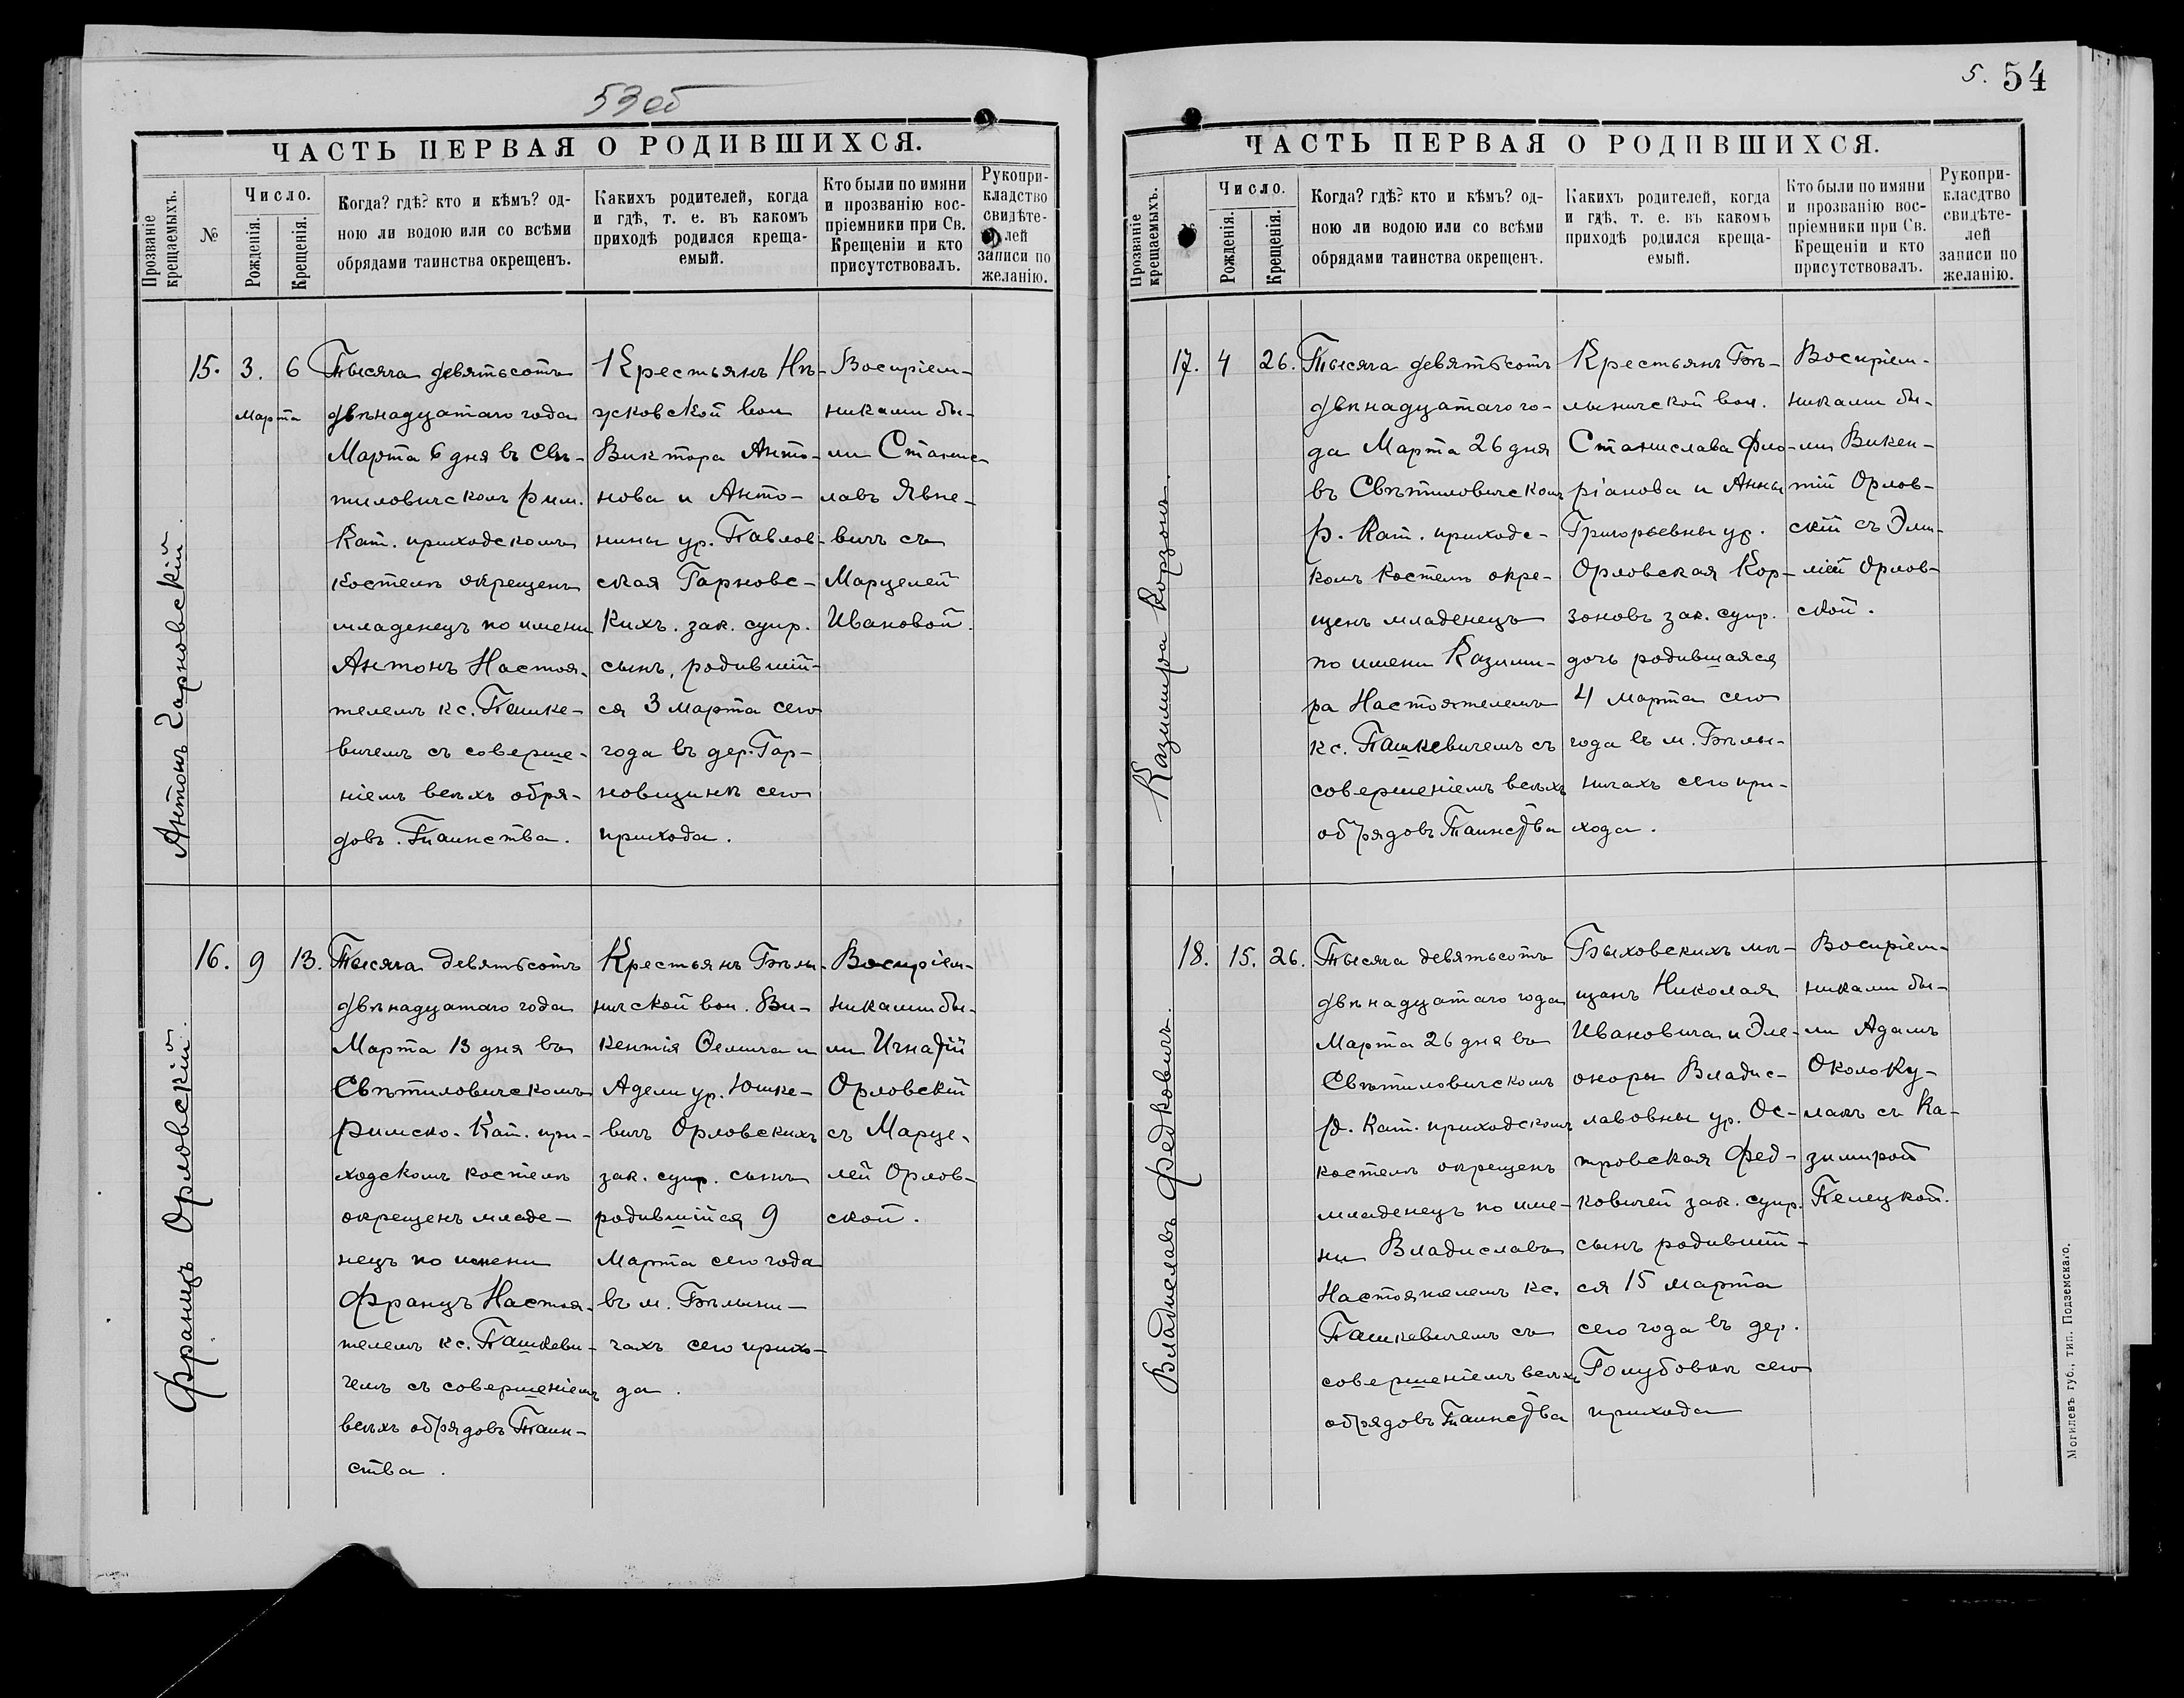 53 об
ЧАСТЬ ПЕРВАЯ О РОДИВШИХСЯ.
Прозваніе крещаемыхъ.
№
Число.
Рожденія.
Крещенія.
Когда? гдѣ? кто и кѣмъ? од-
ною ли водою или со всѣми
обрядами таинства окрещенъ.
Какихъ родителей, когда
и гдѣ, т. е. въ какомъ
приходѣ родился креща-
емый.
Кто были по имяни
и прозванію вос-
пріемники при Св.
Крещеніи и кто
присутствовалъ.
Рукопри-
кладство
свидѣте-
лей
записи по
желанію.
Антонъ Гарновскій.
15.
3.
Марта
6
Тысяча девятьсотъ
двѣнадцатаго года
Марта 6 дня въ Свѣ-
тиловичскомъ рим.
Кат. приходскомъ
костелѣ окрещенъ
младенецъ по имени
Антонъ Настоя-
телемъ кс. Пашке-
вичемъ съ соверше-
ніемъ всѣхъ обря-
довъ Таинства.
Крестьянъ Нѣ-
жковской вол
Виктора Анто-
нова и Анто-
нины ур. Павлов-
ская Гарновс-
кихъ. зак. супр.
сынъ, родившій-
ся 3 марта сего
года въ дер. Гар-
новщинѣ сего
прихода.
Воспріем-
никами бы-
ли Станис-
лавъ Явне-
вичъ съ
Марцелей
Ивановой.
Францъ Орловскій.
16.
9
13.
Тысяча девятьсотъ
двѣнадцатаго года
Марта 13 дня въ
Свѣтиловичскомъ
Римско. Кат. при-
ходскомъ костелѣ
окрещенъ младе-
нецъ по имени
Францъ Настоя-
телемъ кс. Пашкеви-
чемъ съ совершеніемъ
всѣхъ обрядовъ Таин-
ства.
Крестьянъ Бѣлы-
ничской вол. Ви-
кентія Ѳомича и
Адели ур. Юшке-
вичъ Орловскихъ
зак. супр. сынъ
родившійся 9
Марта сего года
въ м. Бѣлыни-
чахъ сего прихо-
да.
Воспріем-
никами бы-
ли Игнатій
Орловскій
съ Марце-
лей Орлов-
ской.
5. 54
ЧАСТЬ ПЕРВАЯ О РОДИВШИХСЯ.
Прозваніе крещаемыхъ.
Число.
Рожденія.
Крещенія.
Когда? гдѣ? кто и кѣмъ? од-
ною ли водою или со всѣми
обрядами таинства окрещенъ.
Какихъ родителей, когда
и гдѣ, т. е. въ какомъ
приходѣ родился креща-
емый.
Кто были по имяни
и прозванію вос-
пріемники при Св.
Крещеніи и кто
присутствовалъ.
Рукопри-
класдтво
свидѣте-
лей
записи по
желанію.
Казимира Корзонъ.
17.
4
26.
Тысяча девятьсотъ
двѣнадцатаго го-
да Марта 26 дня
въ Свѣтиловичскомъ
р. Кат. приходс-
комъ костелѣ окре-
щенъ младенецъ
по имени Казими-
ра Настоятелемъ
кс. Пашкевичемъ съ
совершеніемъ всѣхъ
обрядовъ Таинства
Крестьянъ Бѣ-
лыничской вол.
Станислава Фло-
ріанова и Анны
Григорьевны ур.
Орловская Кор-
зоновъ зак. супр.
дочь родившаяся
4 марта сего
года въ м. Бѣлы-
ничахъ сего при-
хода.
Воспріем-
никами бы-
ли Викен-
тій Орлов-
скій съ Эми-
ліей Орлов-
ской.
Владиславъ Федковичъ.
18.
15.
26.
Тысяча девятьсотъ
двѣнадцатаго года
Марта 26 дня въ
Свѣтиловичскомъ
р. Кат. приходскомъ
костелѣ окрещенъ
младенецъ по име-
ни Владиславъ
Настоятелемъ кс.
Пашкевичемъ съ
совершеніемъ всѣхъ
обрядовъ Таинства
Быховскихъ мѣ-
щанъ Николая
Ивановича и Эле-
оноры Владис-
лавовны ур. Ос-
тровская Фед-
ковичей зак. супр.
сынъ родившій-
ся 15 марта
сего года въ дер.
Голубовкѣ сего
прихода
Воспріем-
никами бы-
ли Адамъ
Околоку-
лакъ съ Ка-
зимирой
Пелецкой.
Могилевъ губ., тип. Подземскаго.